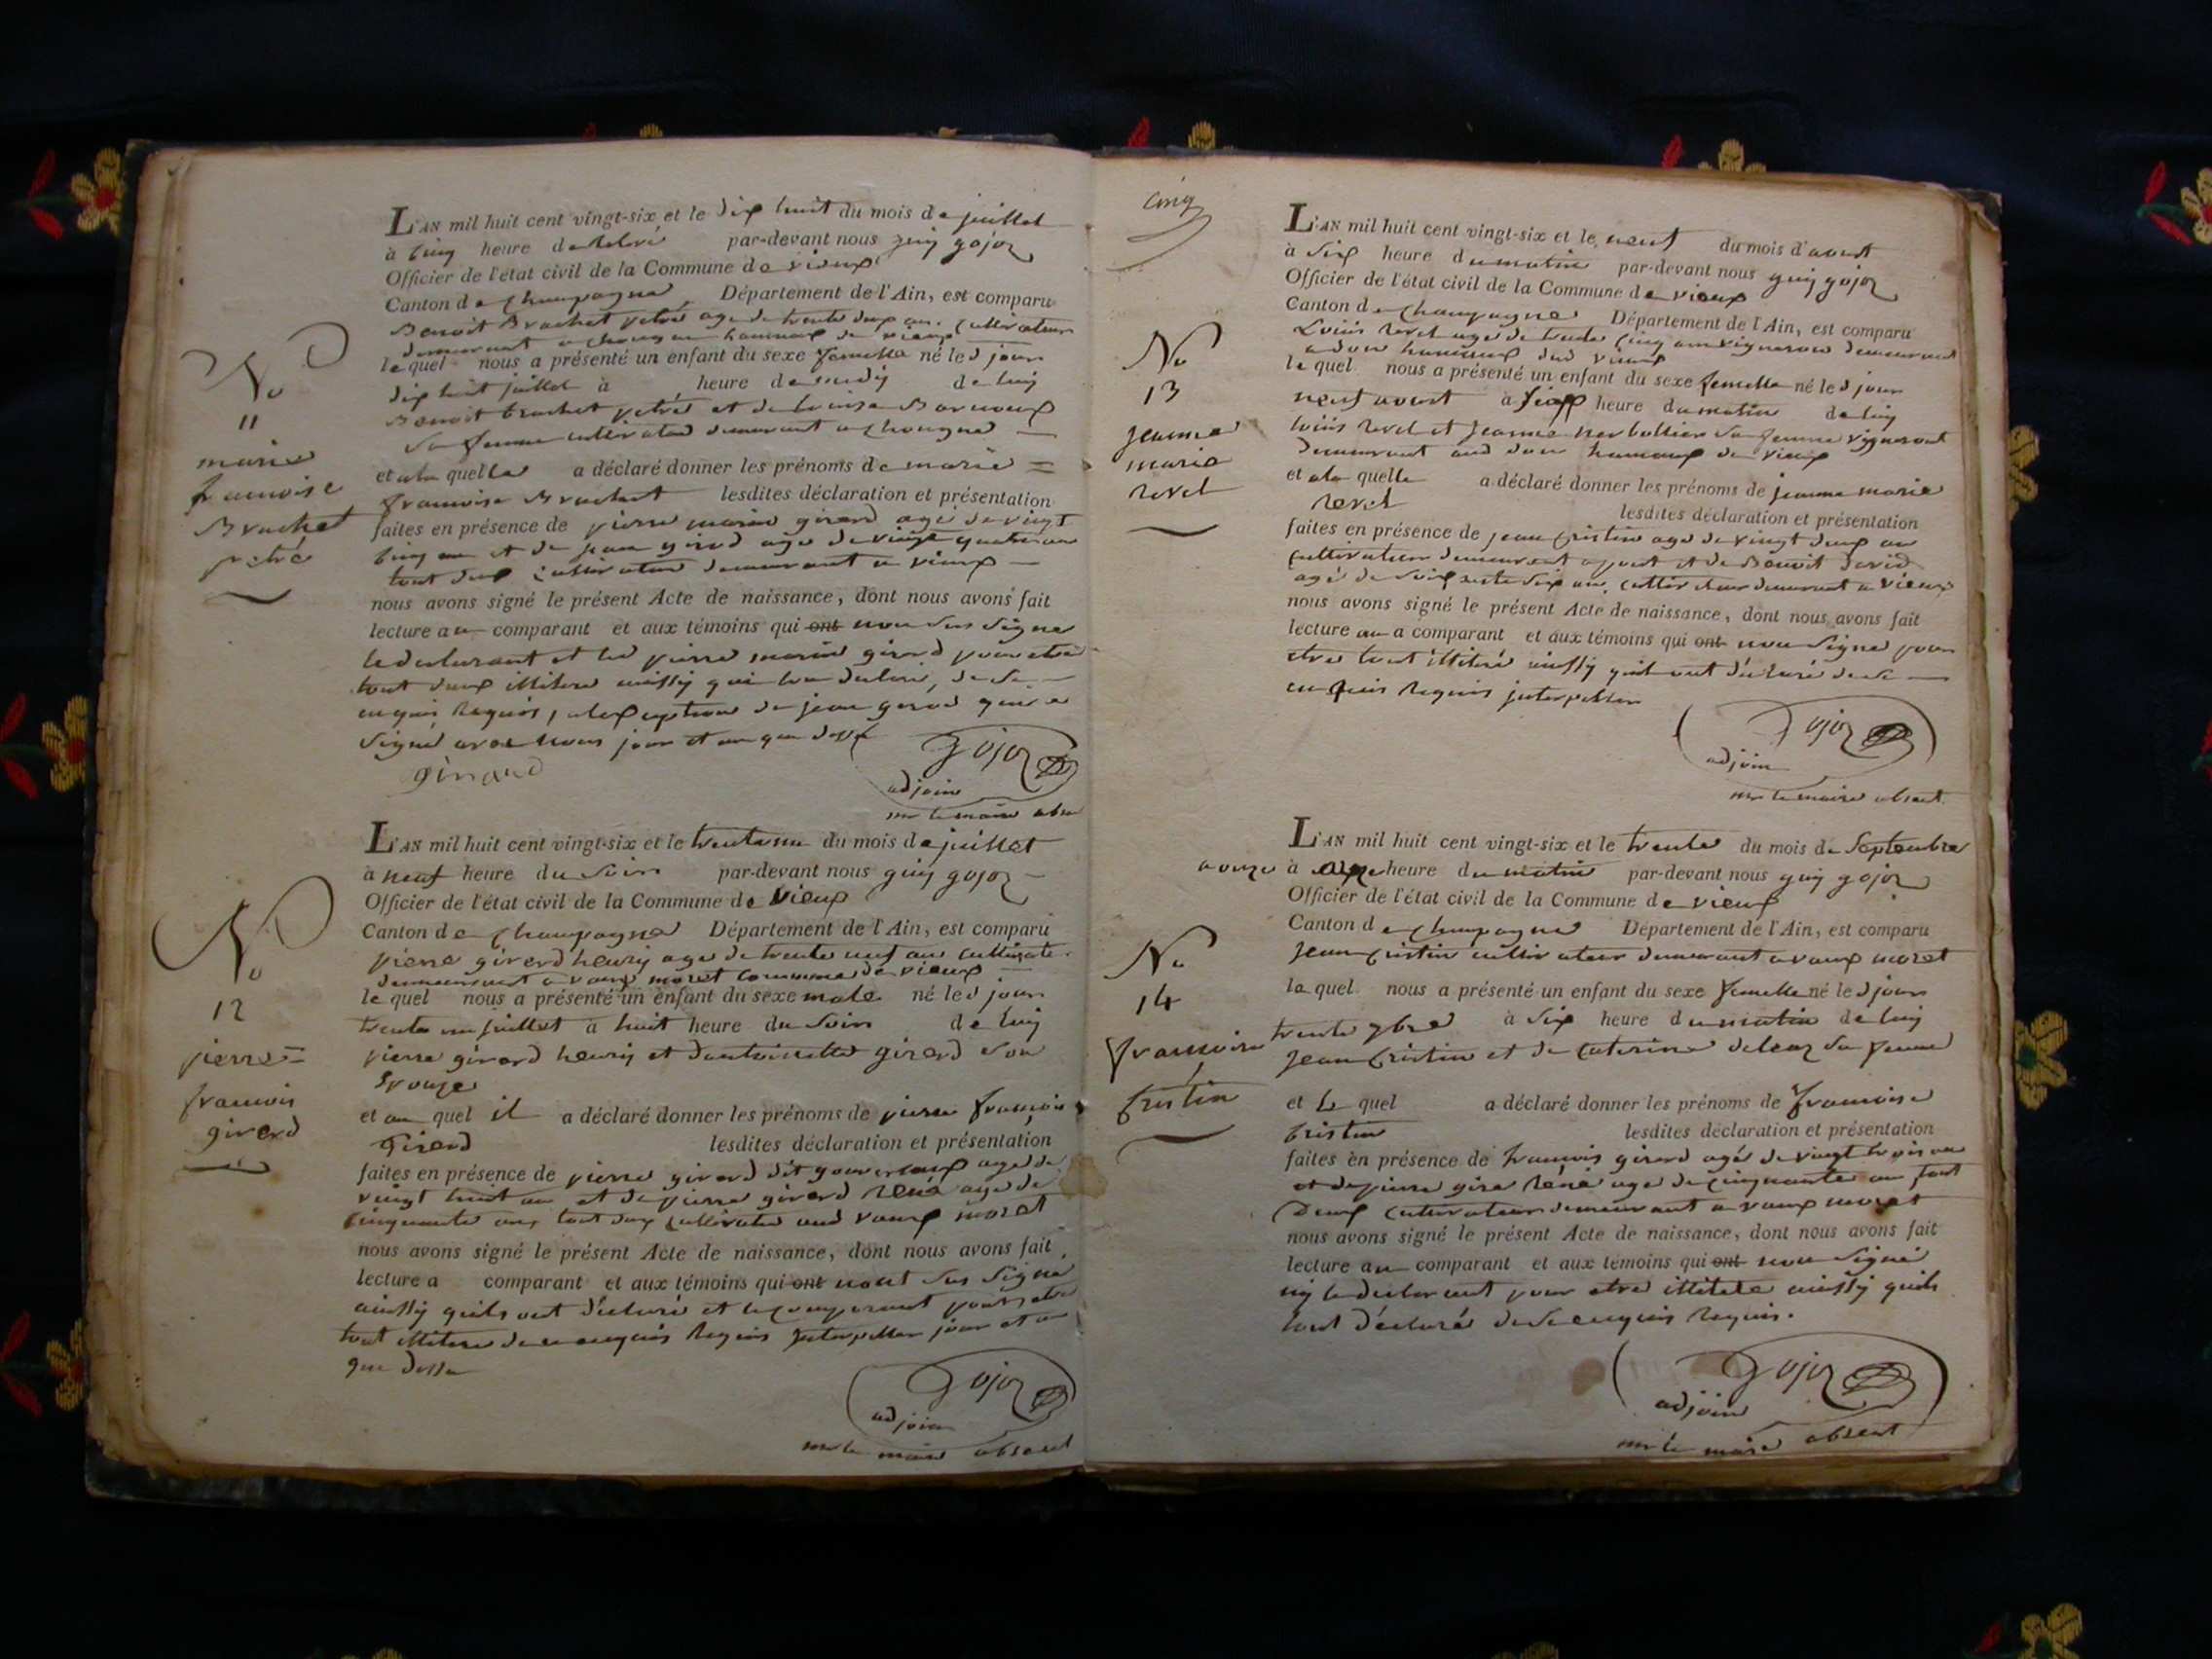 L'AN mil huit cent vingt-six et le dix huit du mois de juillet
à cinq heure de par-devant nous guy gojoz
Officier de l'état civil de la Commune de vieux
Canton de champagne Département de l'Ain, est comparu
Benoit Brachet petré age de trente deux an. cultivateur
demeurant a chongne hammaux de vieux
le quel nous a présenté un enfant du sexe femelle né le d jour
dix huit juillet à heure de midy de luy
Benoit brachet petré et de louise
sa femme cultivateur demeurant a chongne
et a la quelle a déclaré donner les prénoms de marie =
francoise Brachet lesdites déclaration et présentation
faites en présence de pierre marin girard agé de vingt
cinq an et de jean girard age de vingt quatre an
tout deux cultivateur demeurant a vieux
nous avons signé le présent Acte de naissance, dont nous avons fait
lecture au comparant et aux témoins qui ont non sus signe
le declarant et led pierre marin girard pour etre
tout deux illitere ainssy qui lon declaré, de ce
enquis requis, a lexception de jean girard qui a
signé avec nous jour et an que dessu
girard
gojoz
adjoin
mr le maire absen
No
11
marie
francoise
Brachet
petré
L'AN mil huit cent vingt-six et le trente un du mois de juillet
à neuf heure du soir par-devant nous guy gojoz
Officier de l'état civil de la Commune de vieux
Canton de champagne Département de l'Ain, est comparu
pierre girard henry age de trente neuf an cultivate.
demeurant a vaux moret commune de vieux
le quel nous a présenté un enfant du sexe male né le d jour
trente un juillet à huit heure du soir de luy
pierre girard henry et dantoinette girard son
epouze
et au quel il a déclaré donner les prénoms de pierre françois
Girard lesdites déclaration et présentation
faites en présence de pierre girard dit agé de
vingt huit an et de pierre girard rené age de
cinquante ans tout deux cultivateur aud vaux moret
nous avons signé le présent Acte de naissance, dont nous avons fait
lecture a comparant et aux témoins qui ont nont sus signe
ainssy quils ont déclaré et le comparant pour etre
tout illitere de ce enquis requis interpeller jour et an
que dessu
gojoz
adjoin
mr le maire absent
No
12
pierre =
francois
girard
cinq
L'AN mil huit cent vingt-six et le neuf du mois d'aoust
à six heure du matin par-devant nous guy gojoz
Officier de l'état civil de la Commune de vieux
Canton de champagne Département de l'Ain, est comparu
Louis revel age de trente cinq an vigneron demeurant
a don hammeux dud vieux
le quel nous a présenté un enfant du sexe femelle né le d jour
neuf aoust à heure du matin de luy
louis revel et jeanne sa femme vigneront
demeurant aud don hameaux de vieux
et a la quelle a déclaré donner les prénoms de jeanne marie
revel lesdites déclaration et présentation
faites en présence de jean cristin age de vingt deux an
cultivateur demeurant et de Benoit David
agé de soixante six an, cultivateur demeurant a vieux
nous avons signé le présent Acte de naissance, dont nous avons fait
lecture au a comparant et aux témoins qui ont non signe pour
etre tout illitéré ainssy quil ont déclaré de ce
enquis requis interpeller
gojoz
adjoin
mr le maire absent
No
13
jeanne
marie
revel
L'AN mil huit cent vingt-six et le trente du mois de Septembre
a onze à heure du matin par-devant nous guy gojoz
Officier de l'état civil de la Commune de vieux
Canton de champagne Département de l'Ain, est comparu
jean cristin cultivateur demeurant a vaux moret
le quel nous a présenté un enfant du sexe femelle né le d jour
trente 7bre à six heure du matin de luy
jean cristin et de caterine sa femme
et le quel a déclaré donner les prénoms de francoise
cristin lesdites déclaration et présentation
faites en présence de francois girard agé de vingt trois an
et de pierre girar rené age de cinquante an tout
deux cultivateur demeurant a vaux moret
nous avons signé le présent Acte de naissance, dont nous avons fait
lecture au comparant et aux témoins qui ont non signé
ny le declarant pour etre illitere ainssy quils
lont déclaré de ce enquis requis.
gojoz
adjoin
mr le maire absent
No
14
francoise
cristin